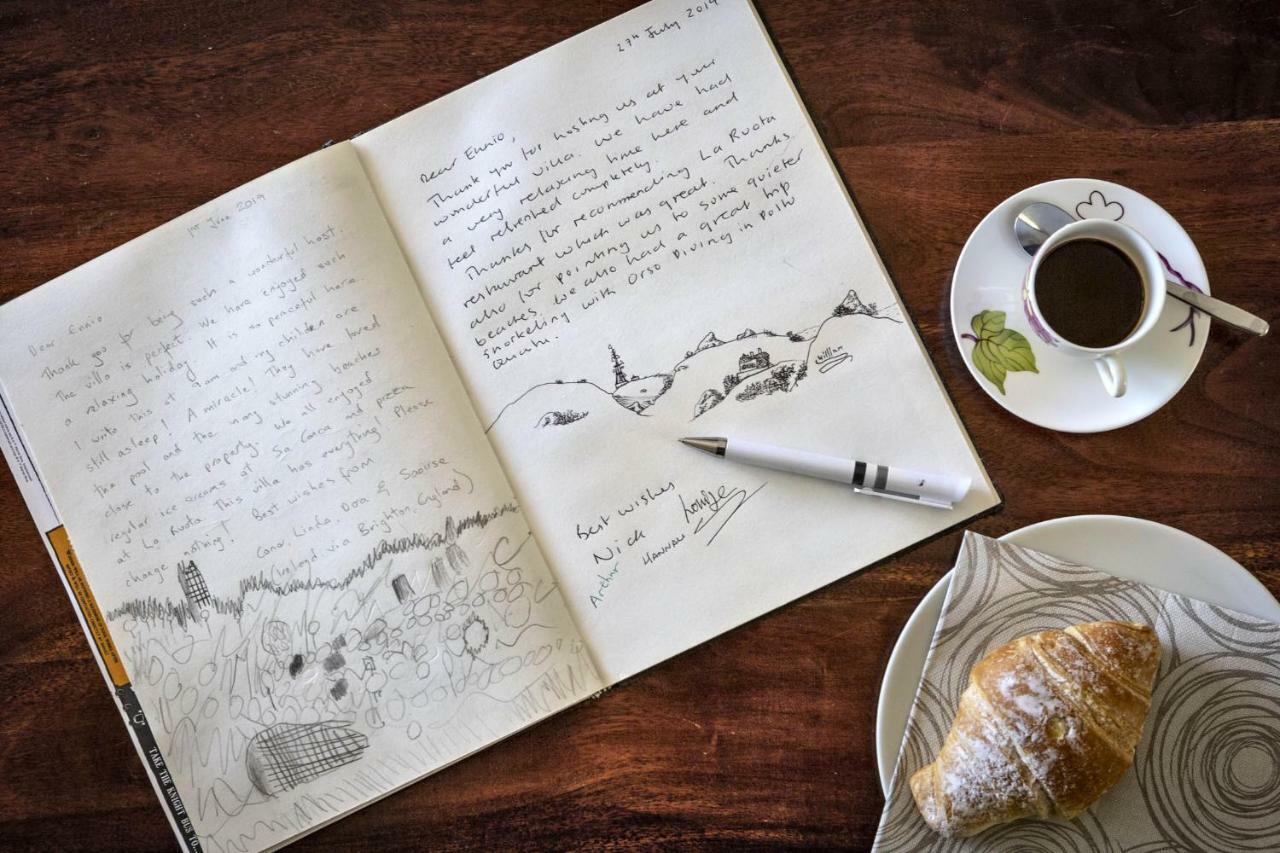 1st June 2019
Dear Ennio
Thank you for being such a wonderful host.
The villa is perfect. We have enjoyed such
a relaxing holiday. It is so peaceful here.
I write this at 9am and my children are
still asleep! A miracle! They have loved
the pool and the many stunning beaches
close to the property. We all enjoyed
regular ice creams at Sa Coca and pizza
at La Ruota. This villa has everything! Please
change nothing! Best wishes from
Conor, Linda, Dora & Saoirse
via Brighton, England)
TAKE THE KNIGHT BUS TO...
27th July 2019
Dear Ennio,
Thank you for hosting us at your
wonderful villa. We have had
a very relaxing time here and
feel refreshed completely.
Thanks for recommending La Ruota
restaurant which was great. Thanks
also for pointing us to some quieter
beaches. We also had a great trip
snorkeling with Orso Diving in Poltu
Quatu.
William
Best wishes
Nick Louise
Arthur HANNAH